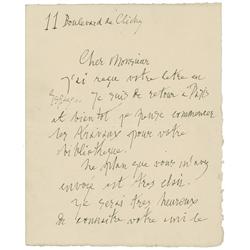 11 Boulevard de Clichy
Cher Monsieur
j'ai reçue votre letre en
Espagne. Je suis de retour a Paris
et bientot je pense commencer
les travaux pour votre
bibliotheque.
Le plan que vous m'avez
envoyé est tres clair.
Je serai tres heureux
de connaitre votre ami le